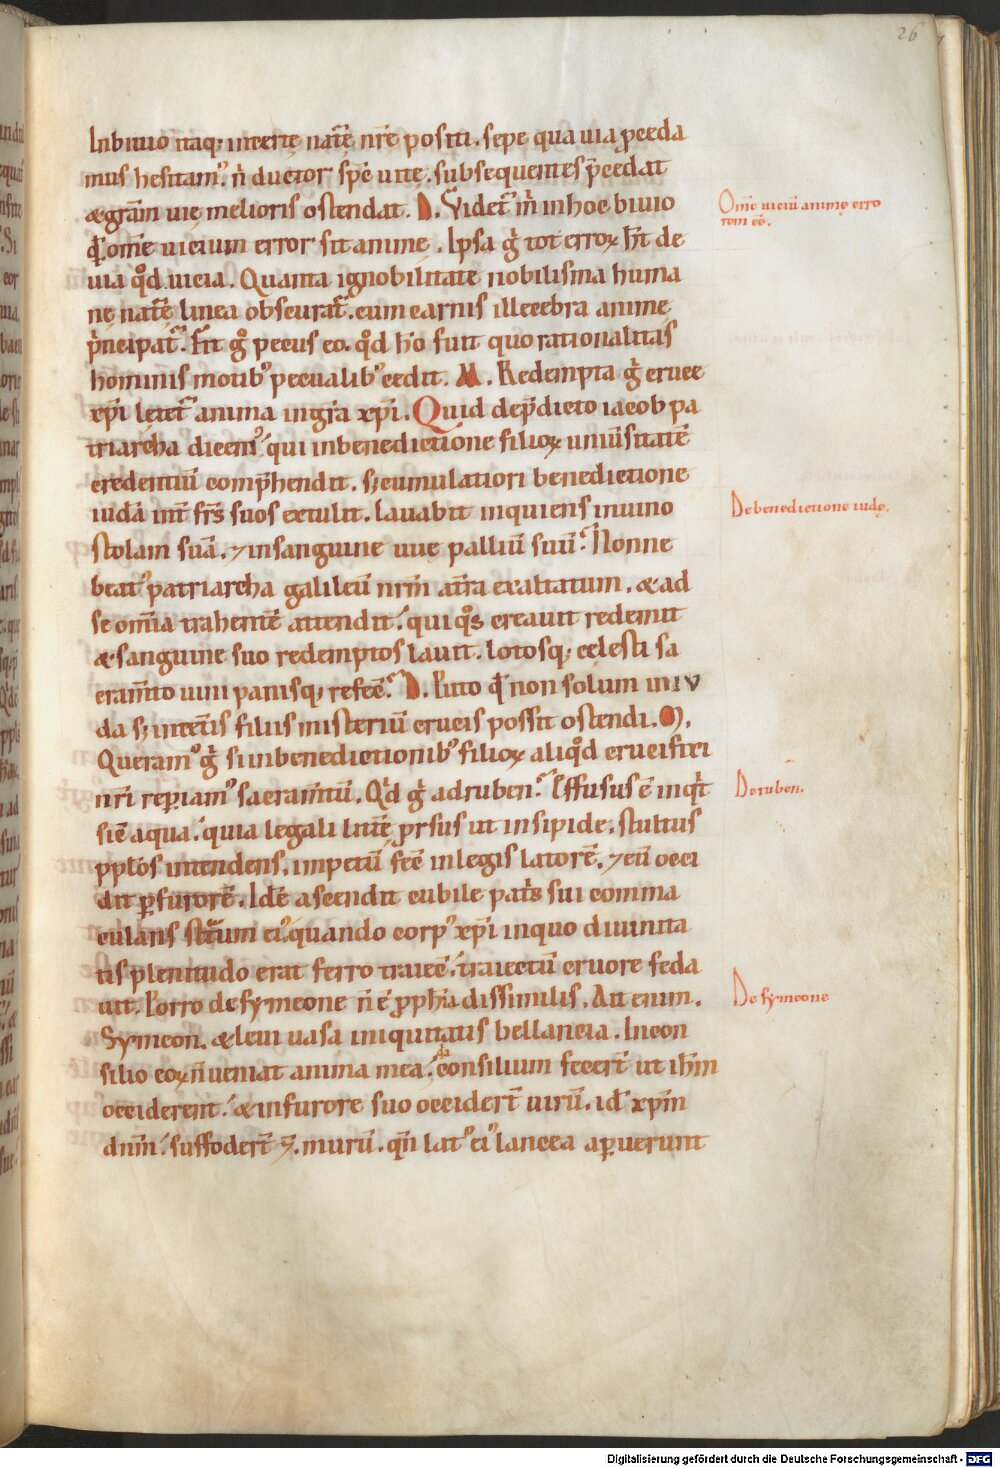 26
Inbiuio itaq; incertę nat̄ę nr̄ę positi . sepe qua uia p̄ceda
mus hesitam᷒ . n̄ ductor spē uitę . subsequentes p̄cedat
&gr̄am uię melioris ostendat . D . Videt᷑ m̄ inhoc biuio
Om̄e uiciū animę erro
rem eē .
qd̄ om̄e uicium error sit animę . Ipsa g̊ tot erroꝝ h̄t de
uia qͦd uicia . Quanta ignobilitate nobilissima huma
nę nat̄ę linea obscurat᷑ . cum carnis illecebra animę
p̄ncipat᷑ . Fit gͦ pecus eo . qͦd hō fuit quo rationalitas
hominis motib᷒ pecualib᷒ cedit . M . Redempta g̊ cruce
xp̄i letet᷑ anima ingr̄a xp̄i . Quid dep̄dicto iacob pa
triarcha dicem᷒ qui inbenedictione filioꝝ uniūsitatē
credentiū comp̄hendit . s; cumulatiori benedictione
iudā int̄ fr̄s suos extulit . Lauabit inquiens inuino
Debenedictione iudę .
stolam suā . ⁊ insanguine uuę palliū suū . Nonne
beat᷒ patriarcha galileū nrm̄ at̄ra exaltatum . & ad
se om̄ia trahentē attendit . qui qͦs creauit redemit
& sanguine suo redemptos lauit . lotosq; cęlesti sa
cram̄to uini panisq; refec̄ . D . Puto qd̄ non solum in iu
da s; incet̄is filiis misteriū crucis possit ostendi . M .
Queram᷒ g̊ si inbenedictionib᷒ filioꝝ aliqͦd crucifixi
nr̄i rep̄iam᷒ sacram̄tū . Qd̄ g̊ adruben . Effusus ē inqt̄
Deruben .
sic̄ aqua . quia legali litt̄ę prsus ut insipide . stultus
pplōs intendens . impetū fec̄ inlegis latorē . ⁊ eū occi
dit p̄furorē . Idē ascendit cubile patr̄s sui comma
culans str̄atum ei᷒ . quando corp᷒ xp̄i inquo diuinita
tis plenitudo erat ferro traiec̄ . traiectū cruore feda
uit . Porro desymeone n̄ ē p̄phīa dissimilis . Ait enim .
Desymeone
Symeon . & leui uasa iniquitatis bellancia . Incon
silio eoꝝ n̄ ueniat anima mea . consilium fecer̄t ut ih̄m
occiderent . & infurore suo occider̄t uirū . id ē xp̄m
dn̄m . suffoder̄t q . murū . qn̄ lat᷒ ei᷒ lancea ap̄uerunt
Digitalisierung gefördert durch die Deutsche Forschungsgemeinschaft - DFG